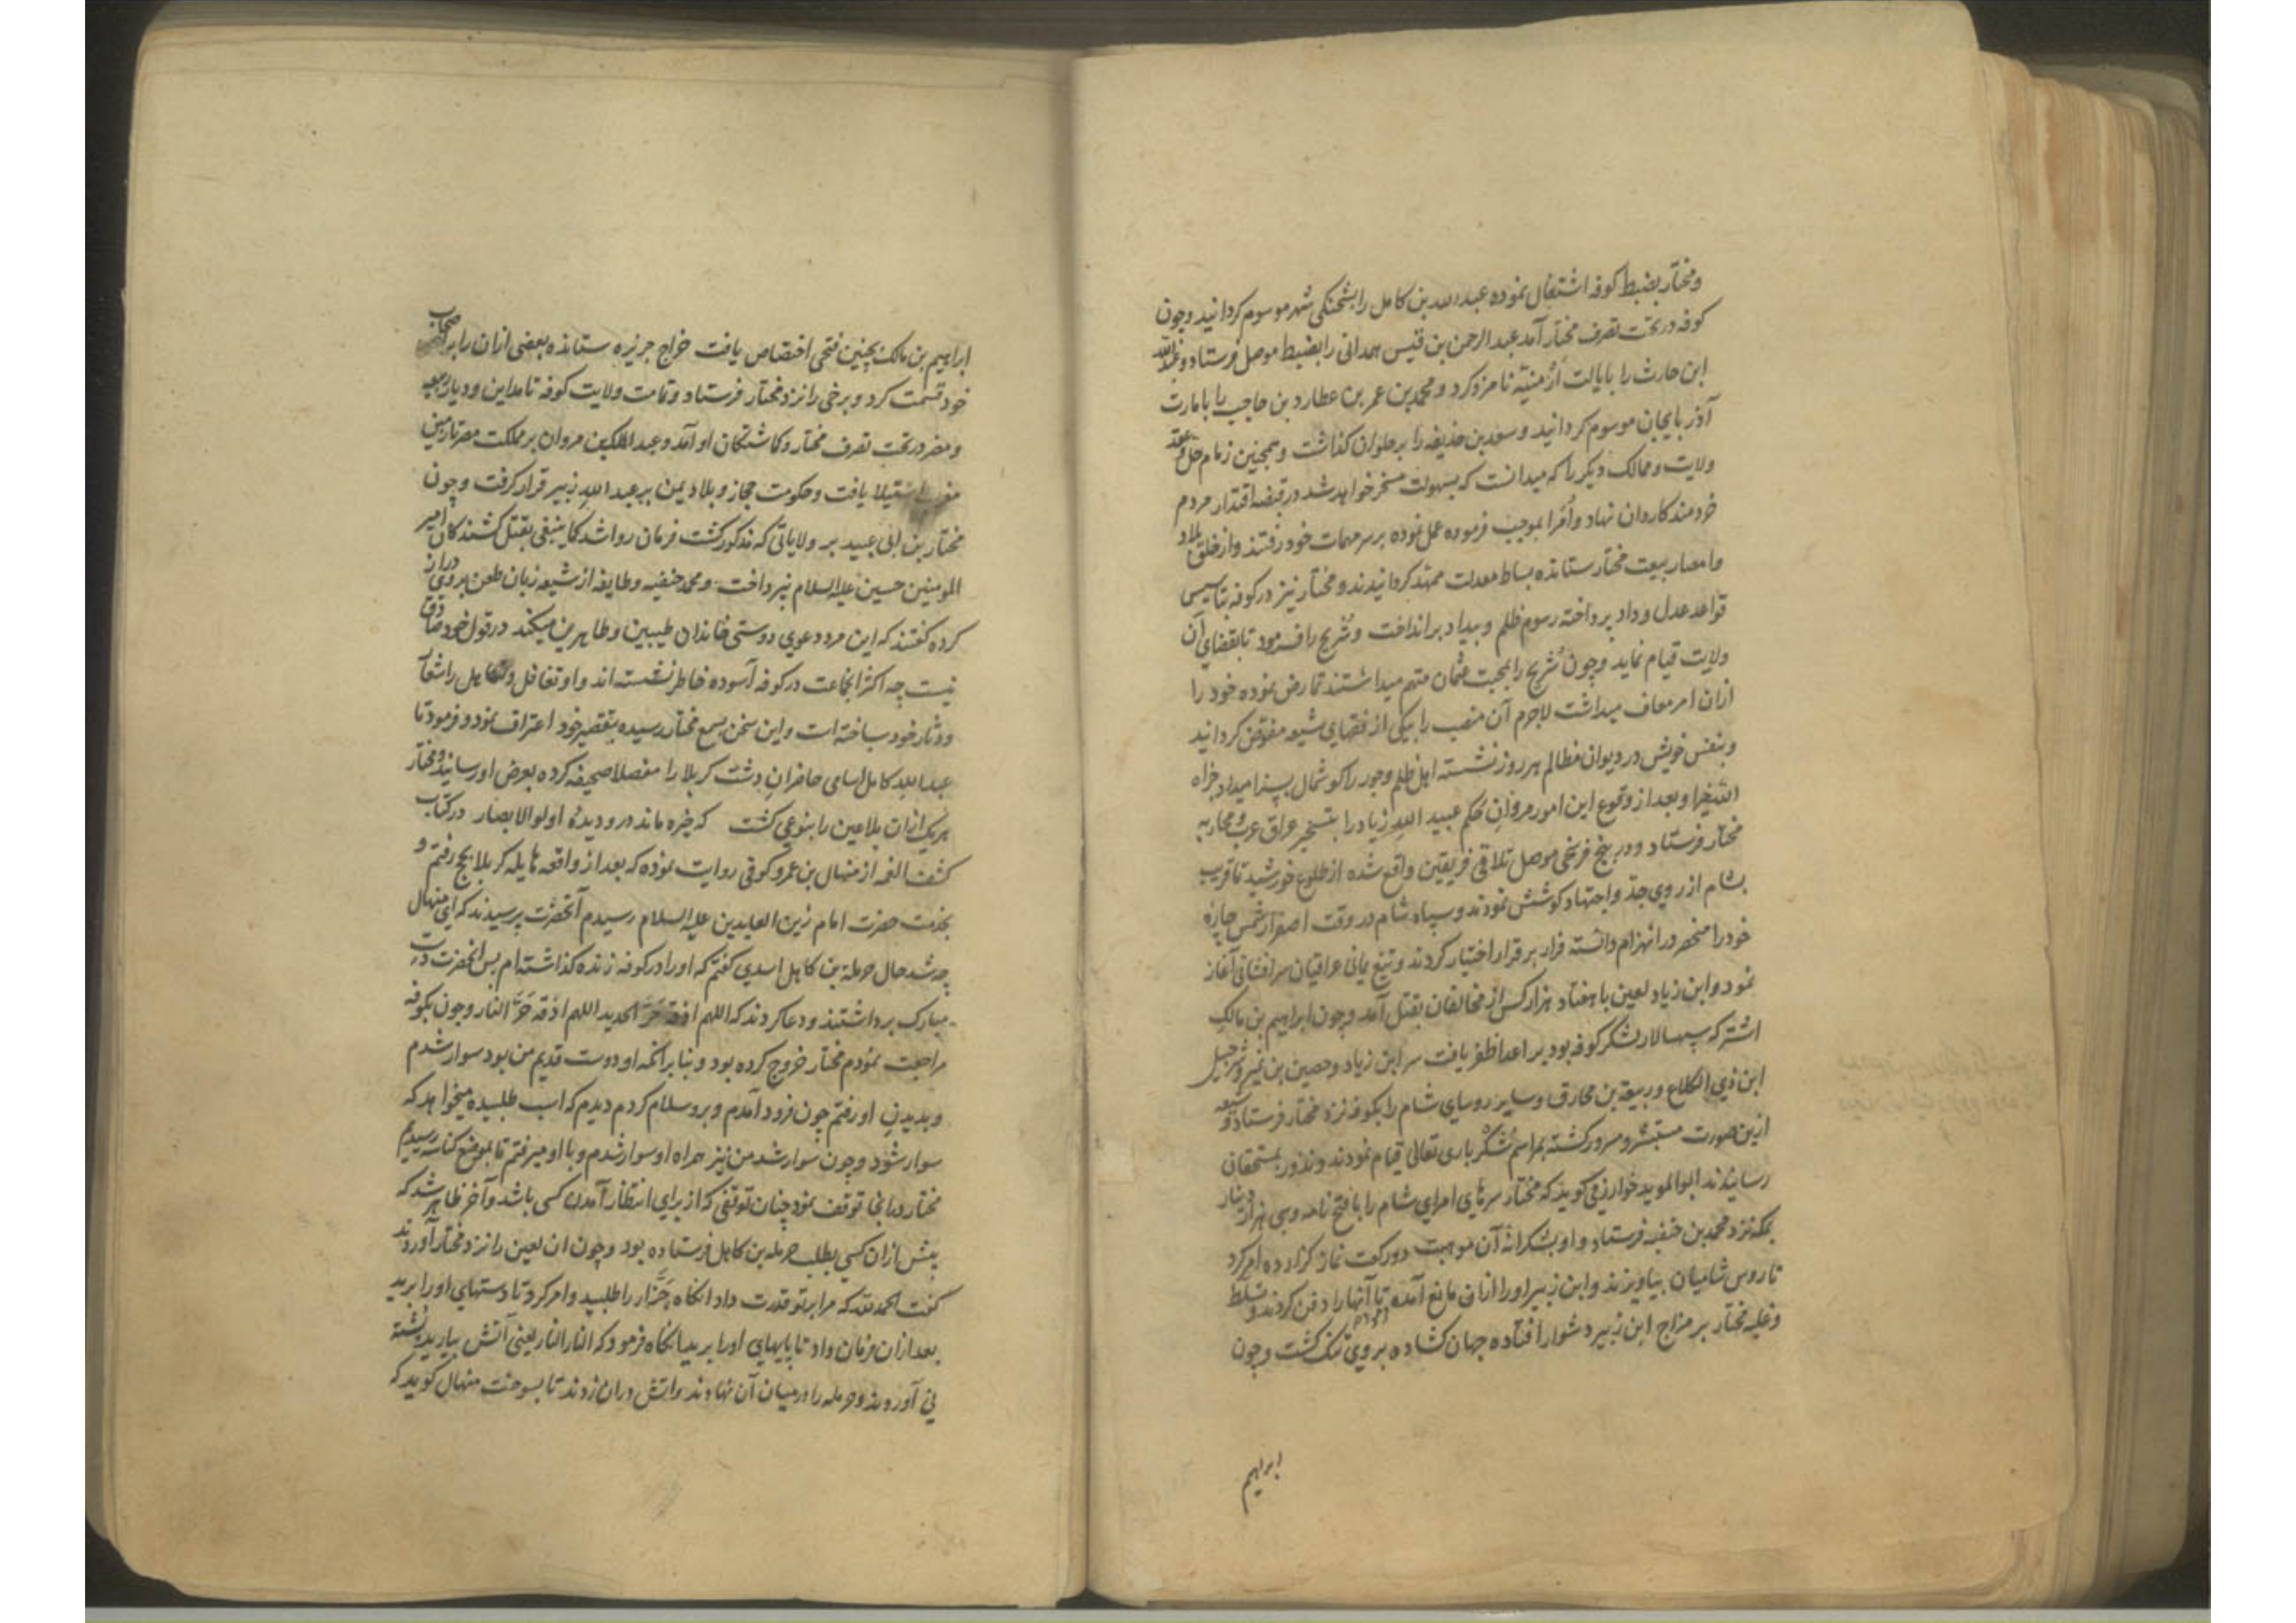 و مختار بضبط کوفه اشتغال نموده عبدالله بن کامل را بشحنکی شهر موسوم کردانید و چون
کوفه در تحت تصرف مختار آمد عبدالرحمن بن قیس همدانی را بضبط موصل فرستاد و عبدالله
ابن حارث را بایالت ارمنیّه نامزد کرد و محمد بن عمر بن عطارد بن حاجب را با مارت
آذربایجان موسوم کردانید و سعد بن حذیفه را بر حلوان کذاشت و همچنین زمام حل و عقد
ولایت و ممالک دیکر را که میدانست که بسهولت مسخر خواهد شد در قبضه اقتدار مردم
خردمند کاردان نهاد و اُمرا بموجب فرموده عمل نموده بر سر مهمات خود رفتند و از خلق بلاد
و امصار بیعت مختار ستانده بساط معدلت ممهد کردانیدند و مختار نیز در کوفه بتاسیس
قواعد عدل و داد پرداخته رسوم ظلم و بیداد برانداخت و شُریح را فرمود تا بقضای آن
ولایت قیام نماید و چون شُریح را بمحبت عثمان متهم میداشتند تمارض نموده خود را
ازان امر معاف میداشت لاجرم آن منصب را بیکی از فقهای شیعه مفوّض کردانید
و بنفس خویش در دیوان مظالم هر روز نشسته اهل ظلم وجور را کوشمال بسزا میداد جزاه
الله خیرا و بعد از وقوع این امور مروان حکم عبید الله زیاد را بتسخیر عراق عرب و محاربه
مختار فرستاد و در پنج فرسخی موصل تلاقی فریقین واقع شده از طلوع خورشید تا قریب
بشام از روی جدّ و اجتهاد کوشش نمودند و سپاه شام در وقت اصفرار شمس چاره
خود را منحصر در انهزام دانسته فرار بر قرار اختیار کردند و تیغ یمانی عراقیان سرافشانی آغاز
نمود و ابن زیاد لعین با هفتاد هزار کس از مخالفان بقتل آمد و چون ابراهیم بن مالک
اشتر که سپهسالار لشکر کوفه بود بر اعدا ظفر یافت سر ابن زیاد و حصین بن نمیر و شرحبیل
ابن ذی الکلاع و ربیعة بن مخارق و سایر روسای شام را بکوفه نزد مختار فرستاد و شیعه
ازین صورت مستبشر و مسرور کشته بمراسم شُکر باری تعالی قیام نمودند و نذور بمستحقان
رسانیدند ابوالموید خوارزمی کوید که مختار سرهای امرای شام را با فتح نامه و سی هزار دینار
بمکه نزد محمد بن حنفیه فرستاد و او بشکرانه آن موهبت دو رکعت نماز کزارده امر کرد
تا روس شامیان بیاویزند و ابن زبیر او را ازان مانع آمده تا آنها را دفن کردند و تسلط
و غلبه مختار بر مزاج ابن زبیر دشوار افتاده جهان کشاده بر وی تنک کشت و چون
ابراهیم
ابراهیم بن مالک بچنین فتحی اختصاص یافت خراج جزیره ستانده بعضی ازان را بر اصحاب
خود قسمت کرد و برخی را نزد مختار فرستاد و تمامت ولایت کوفه تا مداین و دیار ربیعه
و مضر در تحت تصرف مختار و کماشتکان او آمد و عبد الملک بن مروان بر مملکت مصر تا زمین
مغرب استیلا یافت و حکومت حجاز و بلاد یمن بر عبد الله زبیر قرار کرفت و چون
مختار بن ابی عبید بر ولایاتی که مذکور کشت فرمان روا شد کما ینبغی بقتل کشندکان امیر
المومنین حسین علیه السلام نپرداخت و محمد حنفیه و طایفه از شیعه زبان طعن بر وی دراز
کرده کفتند که این مرد دعوی دوستی خاندان طیبین و طاهرین میکند در قول خود صادق
نیست چه اکثر انجماعت در کوفه آسوده خاطر نشسته اند و او تغافل و تکاهل را شعار
و دثار خود ساخته است و این سخن بسمع مختار رسیده بتقصیر خود اعتراف نمود و فرمود تا
عبد الله کامل اسامی حاضران دشت کربلا را مفصلا صحیفه کرده بعرض او رسانید و مختار
هر یک ازان ملاعین را بنوعی کشت که خیره ماند درو دیدۀ اولو الابصار در کتاب
کشف الغمه از منهال بن عمرو کوفی روایت نموده که بعد از واقعه هایله کربلا بحج رفتم و
بخدمت حضرت امام زین العابدین علیه السلام رسیدم آنحضرت پرسیدند که ای منهال
چه شد حال حرملة بن کاهل اسدی کفتم که او را در کوفه زنده کذاشته ام پس انحضرت دست
مبارک برداشتند و دعا کردند که اللهم اذقه حَرّ الحدید اللهم اذقه حَرّ النار و چون بکوفه
مراجعت نمودم مختار خروج کرده بود و بنا بر انکه او دوست قدیم من بود سوار شدم
و بدیدن او رفتم چون فرود آمدم و برو سلام کردم دیدم که اسب طلبیده میخواهد که
سوار شود و چون سوار شد من نیز همراه او سوار شدم و با او میرفتم تا بموضع کناسه رسیدیم
مختار در انجا توقف نمود چنان توقفی که از برای انتظار آمدن کسی باشد و آخر ظاهر شد که
پیش ازان کسی بطلب حرمله بن کاهل فرستاده بود و چون ان لعین را نزد مختار آوردند
کفت الحمد لله که مرا بر تو قدرت داد انکاه جَزّار را طلبید و امر کرد تا دستهای او را برید
بعد ازان فرمان داد تا پایهای او را برید انکاه فرمود که النار النار یعنی آتش بیارید پشته
نی آوردند و حرمله را در میان آن نهادند و اتش دران زدند تا بسوخت منهال کوید که